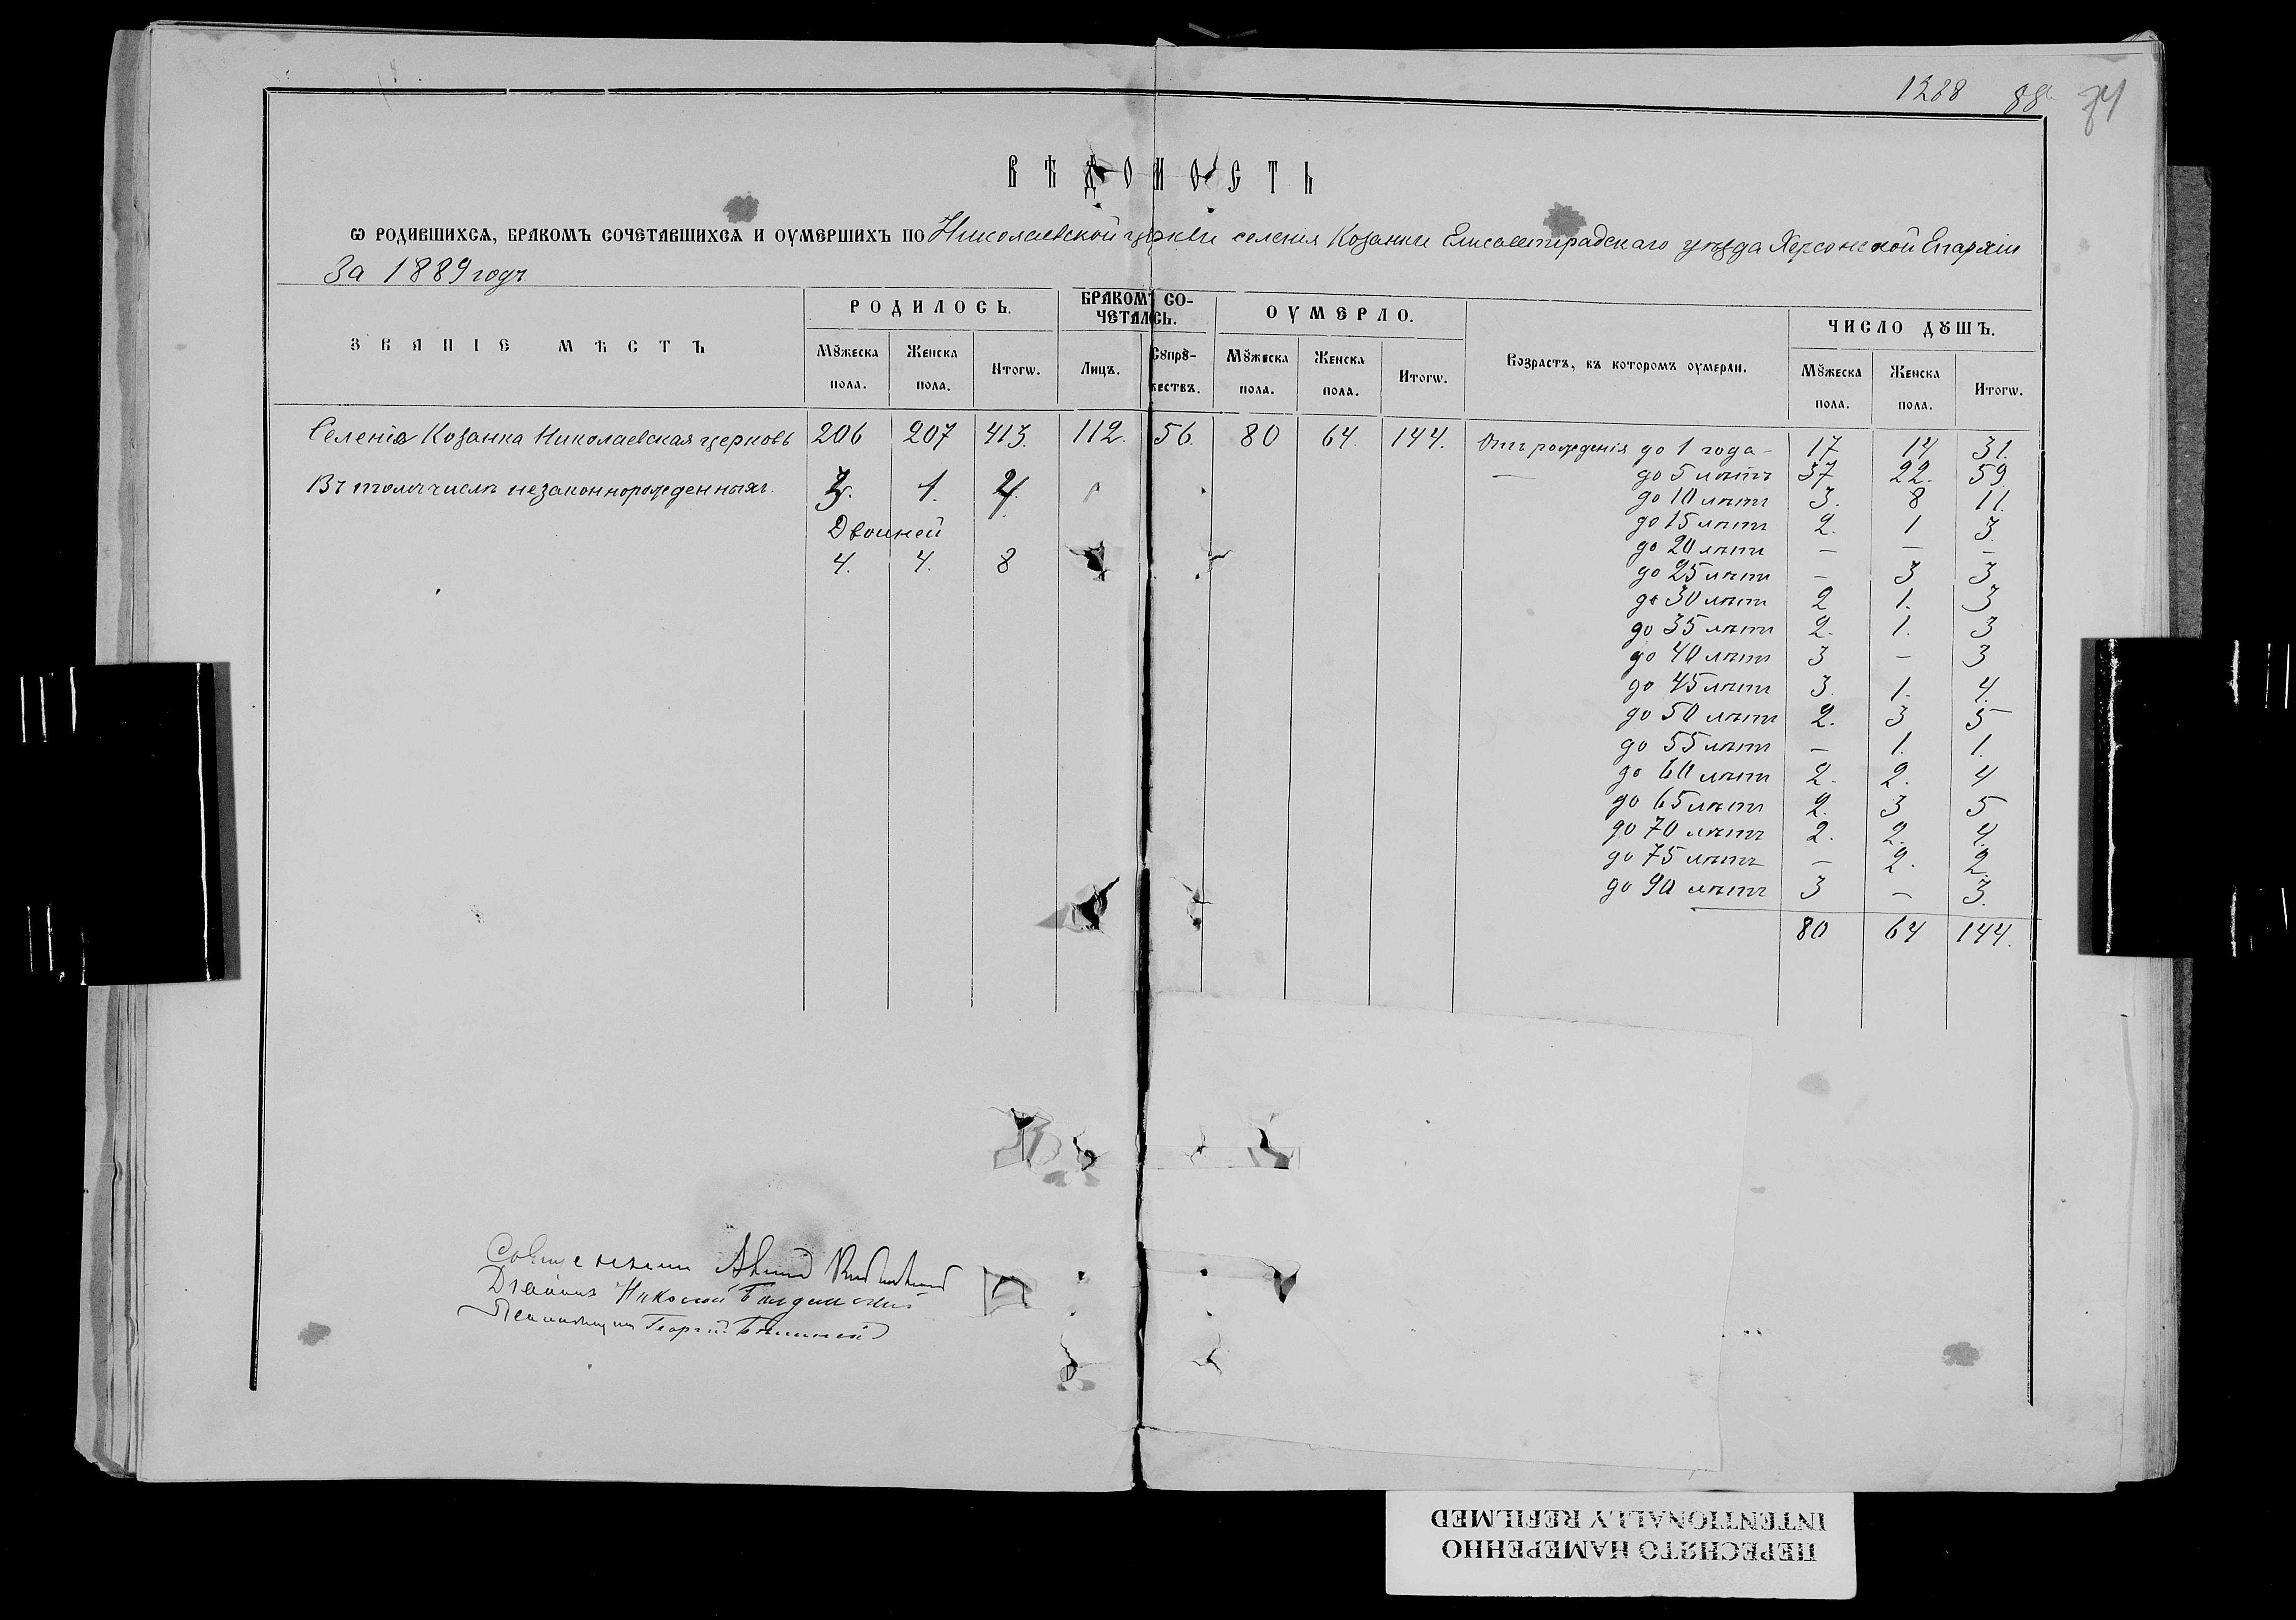 1288 88 74
ВѢДОМОСТЬ
Ѡ РОДИВШИХСѦ, БРАКОМЪ СОЧЕТАВШИХСѦ И ОУМЕРШИХЪ ПО Николаевской церкви селенія Козанки Елисаветградскаго уѣзда Херсонской Епархіи
За 1889 годъ
ЗВАНІЕ МѢСТЪ
РОДИЛОСЬ. БРАКОМЪ СО-ЧЕТАЛОСЬ. ОУМЕРЛО. Возрастъ, въ которомъ оумерли. ЧИСЛО ДꙊШЪ.
Мꙋжеска пола. Женска пола. Итогѡ. Лицъ. Сꙋпрꙋ-жествъ. Мꙋжеска пола. Женска пола. Итогѡ. Мꙋжеска пола. Женска пола. Итогѡ.
Селенія Козанка Николаевская церковь 206 207 413. 112. 56. 80 64. 144.
Въ томъ числѣ незаконнорожденныхъ. 3. 1. 4.
Двойней
4. 4. 8
Отъ рожденія до 1 года - 17 14 31.
— до 5 лѣтъ 37 22. 59.
до 10 лѣтъ 3. 8 11.
до 15 лѣтъ 2. 1 3.
до 20 лѣтъ — — —
до 25 лѣтъ — 3 3
до 30 лѣтъ 2 1. 3
до 35 лѣтъ 2. 1. 3
до 40 лѣтъ 3 — 3
до 45 лѣтъ 3. 1. 4.
до 50 лѣтъ 2. 3 5
до 55 лѣтъ — 1. 1.
до 60 лѣтъ 2. 2. 4
до 65 лѣтъ 2. 3 5
до 70 лѣтъ 2. 2. 4.
до 75 лѣтъ — 2. 2.
до 90 лѣтъ 3 — 3.
80 64 144.
Священникъ
Діаконъ Николай
Псаломщикъ Георгій
ПЕРЕСНЯТО НАМЕРЕННО
INTENTIONALLY REFILMED